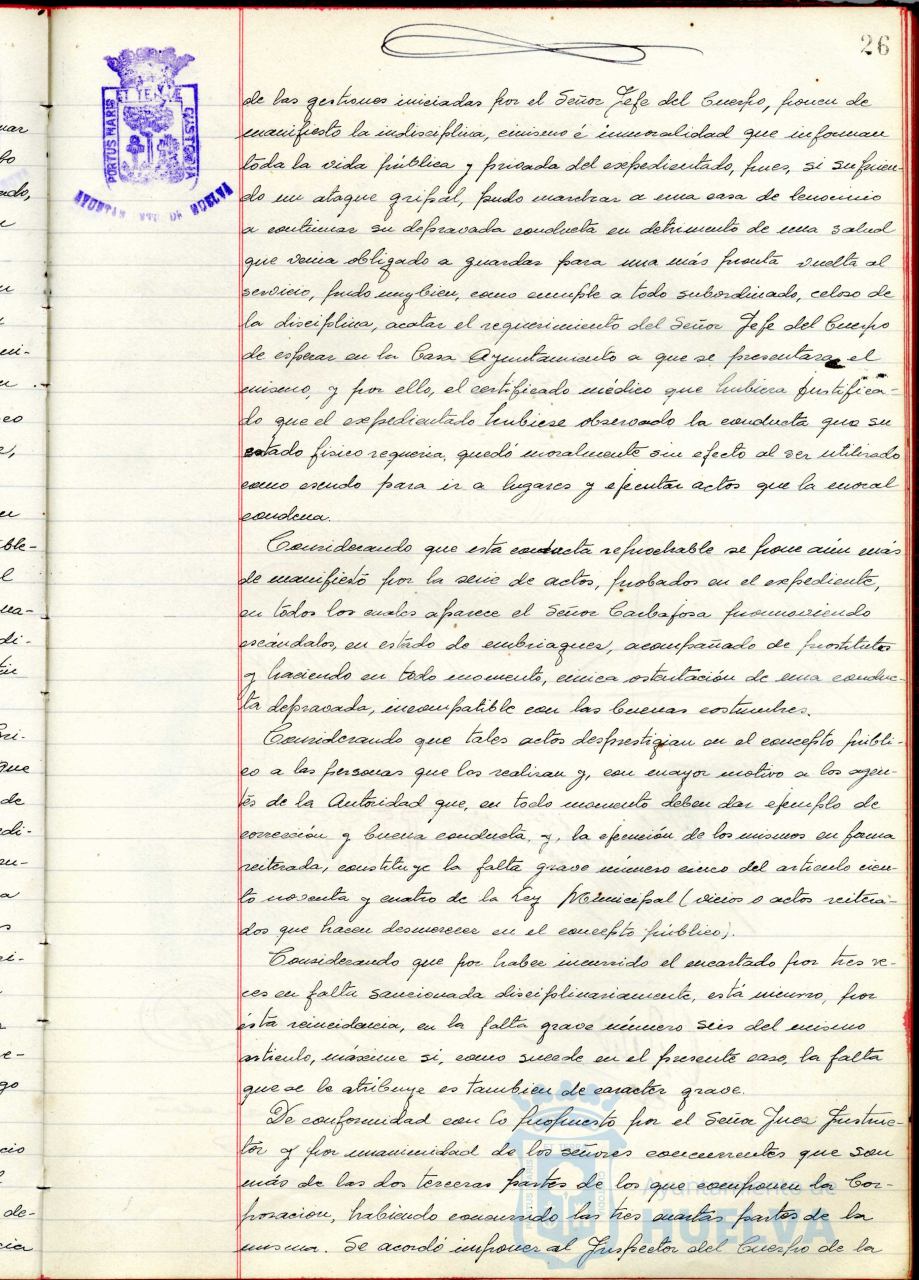 26
PORTUS MARIS ET TERRE CUSTODIA
AYUNTAMIENTO DE HUELVA
de las gestiones iniciadas por el Señor Jefe del Cuerpo, ponen de
manifiesto la indisciplina, cinismo é inmoralidad que informan
toda la vida pública y privada del expedientado, pues, si sufrien-
do un ataque gripal, pudo marchar a una casa de lenocinio
a continuar su depravada conducta en detrimento de una salud
que venia obligado a guardar para una más pronta vuelta al
servicio, pudo muy bien, como cumple a todo subordinado, celoso de
la disciplina, acatar el requerimiento del Señor Jefe del Cuerpo
de esperar en la Casa Ayuntamiento a que se presentara el
mismo, y por ello, el certificado médico que hubiera justifica-
do que el expedientado hubiese observado la conducta que su
estado fisico requeria, quedó moralmente sin efecto al ser utilizado
como escudo para ir a lugares y ejecutar actos que la moral
condena.
Considerando que esta conducta reprochable se pone aún más
de manifiesto por la serie de actos, probados en el expediente,
en todos los cuales aparece el Señor Carbajosa promoviendo
escándalos, en estado de embriaguez, acompañado de prostitutas
y haciendo en todo momento, cinica ostentación de una conduc-
ta depravada, incompatible con las buenas costumbres.
Considerando que tales actos desprestigian en el concepto públi-
co a las personas que los realizan y, con mayor motivo a los agen-
tes de la Autoridad que, en todo momento deben dar ejemplo de
corrección y buena conducta, y, la ejecución de los mismos en forma
reiterada, constituye la falta grave número cinco del articulo cien-
to noventa y cuatro de la Ley Municipal (vicios o actos reitera-
dos que hacen desmerecer en el concepto público).
Considerando que por haber incurrido el encartado por tres ve-
ces en falta sancionada disciplinariamente, está incurso, por
ésta reincidencia, en la falta grave número seis del mismo
articulo, máxime si, como sucede en el presente caso, la falta
que se le atribuye es tambien de caracter grave.
De conformidad con lo propuesto por el Señor Juez Instruc-
tor y por unanimidad de los señores concurrentes que son
más de las dos terceras partes de los que componen la Cor-
poracion, habiendo concurrido las tres cuartas partes de la
misma. Se acordó imponer al Inspector del Cuerpo de la
Ayuntamiento de
HUELVA